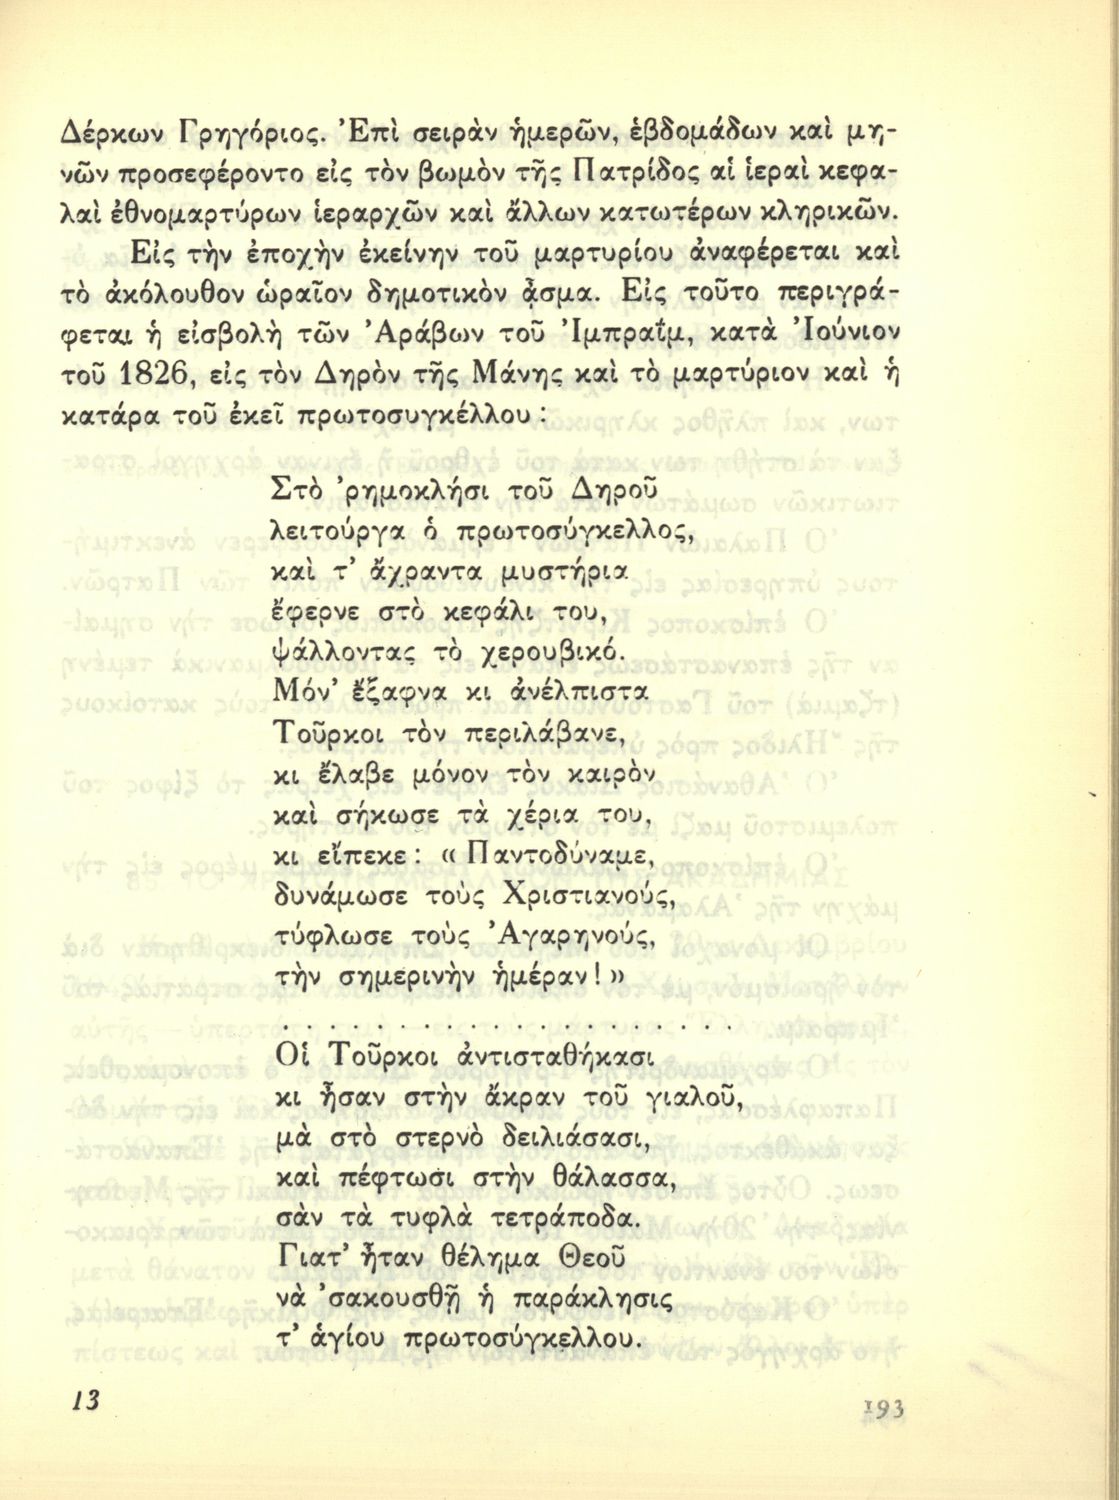 Δέρκων Γρηγόριος. Ἐπὶ σειρὰν ἡμερῶν, ἑβδομάδων καὶ μη-
νῶν προσεφέροντο εἰς τὸν βωμὸν τῆς Πατρίδος αἱ ἱεραὶ κεφα-
λαὶ ἐθνομαρτύρων ἱεραρχῶν καὶ ἄλλων κατωτέρων κληρικῶν.
Εἰς τὴν ἐποχὴν ἐκείνην τοῦ μαρτυρίου ἀναφέρεται καὶ
τὸ ἀκόλουθον ὡραῖον δημοτικὸν ᾆσμα. Εἰς τοῦτο περιγρά-
φεται ἡ εἰσβολὴ τῶν Ἀράβων τοῦ Ἰμπραΐμ, κατὰ Ἰούνιον
τοῦ 1826, εἰς τὸν Δηρὸν τῆς Μάνης καὶ τὸ μαρτύριον καὶ ἡ
κατάρα τοῦ ἐκεῖ πρωτοσυγκέλλου :
Στὸ 'ρημοκλήσι τοῦ Δηροῦ
λειτούργα ὁ πρωτοσύγκελλος,
καὶ τ' ἄχραντα μυστήρια
ἔφερνε στὸ κεφάλι του,
ψάλλοντας τὸ χερουβικό.
Μόν' ἔξαφνα κι ἀνέλπιστα
Τοῦρκοι τὸν περιλάβανε,
κι ἔλαβε μόνον τὸν καιρὸν
καὶ σήκωσε τὰ χέρια του,
κι εἴπεκε : « Παντοδύναμε,
δυνάμωσε τοὺς Χριστιανούς,
τύφλωσε τοὺς Ἀγαρηνούς,
τὴν σημερινὴν ἡμέραν ! »
. . . . . . . . . . . . . . . . . . .
Οἱ Τοῦρκοι ἀντισταθήκασι
κι ἦσαν στὴν ἄκραν τοῦ γιαλοῦ,
μὰ στὸ στερνὸ δειλιάσασι,
καὶ πέφτωσι στὴν θάλασσα,
σὰν τὰ τυφλὰ τετράποδα.
Γιατ' ἦταν θέλημα Θεοῦ
νὰ 'σακουσθῇ ἡ παράκλησις
τ' ἁγίου πρωτοσύγκελλου.
13
193